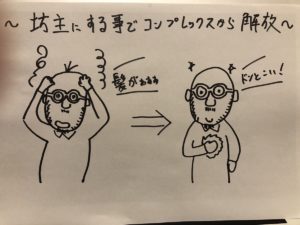 ～坊主にする事でコンプレックスから解放～
髪がぁぁぁ
ドンとこい!